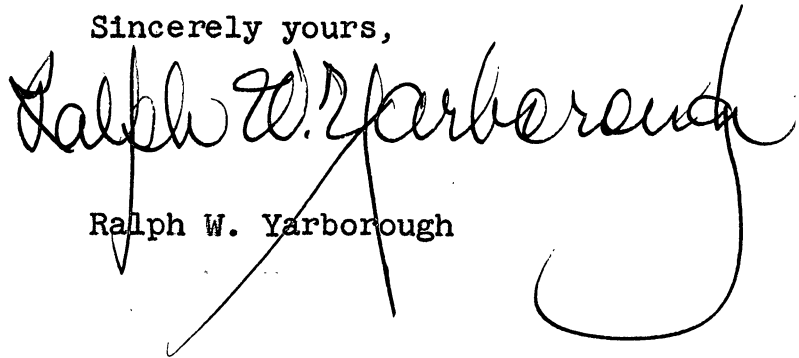 Sincerely yours,
Ralph W. Yarborough
Ralph W. Yarborough